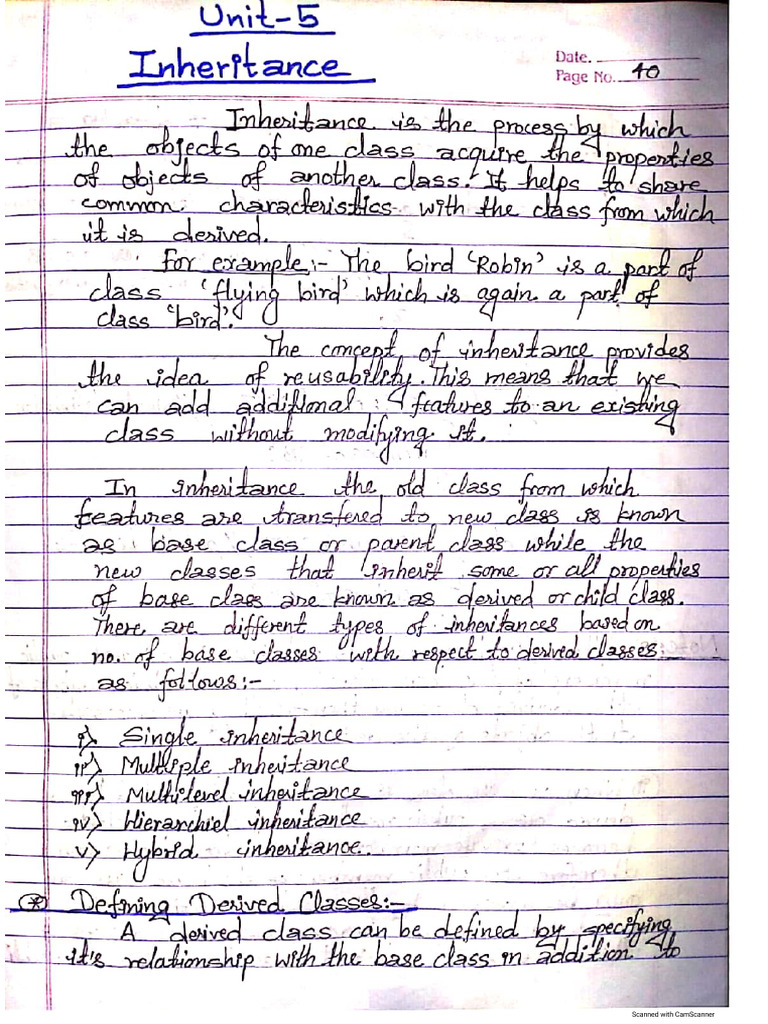 Unit-5
Inheritance
Date.
Page No. 40
Inheritance is the process by which
the objects of one class acquire the properties
of objects of another class. It helps to share
common characteristics with the class from which
it is derived.
For example:- The bird 'Robin' is a part of
class 'flying bird' which is again a part of
class 'bird'.
The concept of inheritance provides
the idea of reusability. This means that we
can add additional features to an existing
class without modifying it.
In inheritance the old class from which
features are transfered to new class is known
as base class or parent class while the
new classes that inherit some or all properties
of base class are known as derived or child class.
There are different types of inheritances based on
no. of base classes with respect to derived classes
as follows:-
i> Single inheritance
ii> Multiple inheritance
iii> Multilevel inheritance
iv> Hierarchiel inheritance
v> Hybrid inheritance.
* Defining Derived Classes:-
A derived class can be defined by specifying
it's relationship with the base class in addition to
Scanned with CamScanner